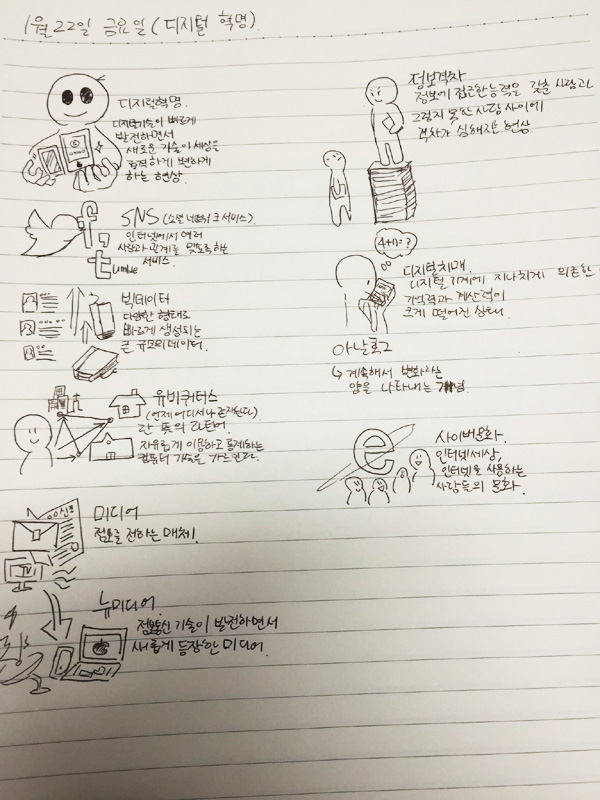 1월 22일 금요일 (디지털 혁명)
디지털혁명.
디지털기술이 빠르게
발전하면서
새로운 기술이 세상을
급격하게 변하게
하는 현상.
SNS (소셜 네트워크 서비스)
인터넷에서 여러
사람과 관계를 맺도록 하는
서비스.
f,
t
빅데이터
다양한 형태로
빠르게 생성되는
큰 규모의 데이터.
유비쿼터스
(언제 어디서나 존재한다)
란 뜻의 라틴어.
자유롭게 이용하고 통제하는
컴퓨터 기술을 가르킨다.
미디어
정보를 전하는 매체.
신문
TV
뉴미디어.
정보통신 기술이 발전하면서
새롭게 등장한 미디어.
정보격차
정보에 접근한 능력을 갖춘 사람과
그렇지 못한 사람 사이에
격차가 심해진 현상.
디지털치매.
디지털 기계에 지나치게 의존한
기억력과 계산력이
크게 떨어진 상태.
아날로그
↳ 계속해서 변화하는
양을 나타내는 개념.
사이버문화.
인터넷세상,
인터넷을 사용하는
사람들의 문화.
e